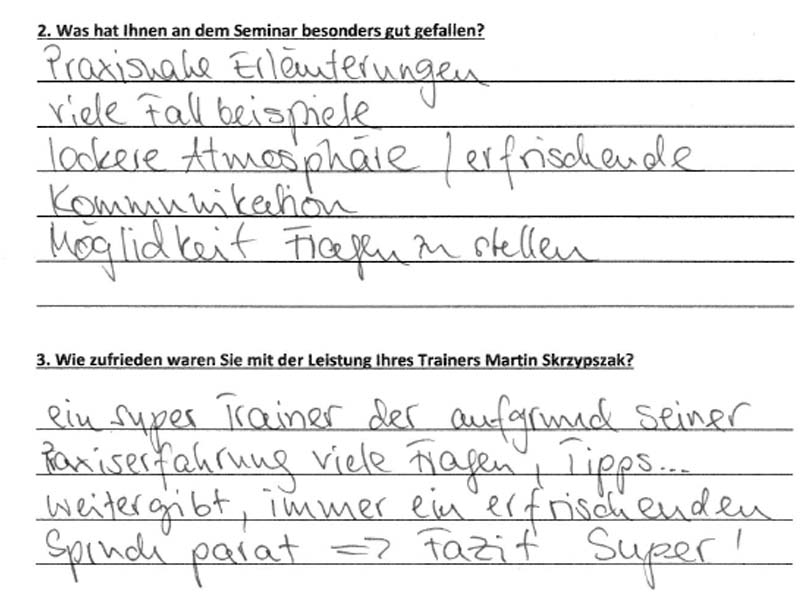 2. Was hat Ihnen an dem Seminar besonders gut gefallen?
Praxisnahe Erläuterungen
viele Fallbeispiele
lockere Atmosphäre / erfrischende
Kommunikation
Möglichkeit Fragen zu stellen
3. Wie zufrieden waren Sie mit der Leistung Ihres Trainers Martin Skrzypszak?
ein super Trainer der aufgrund seiner
Praxiserfahrung viele Fragen, Tipps...
weitergibt, immer ein erfrischenden
Spruch parat => Fazit Super!